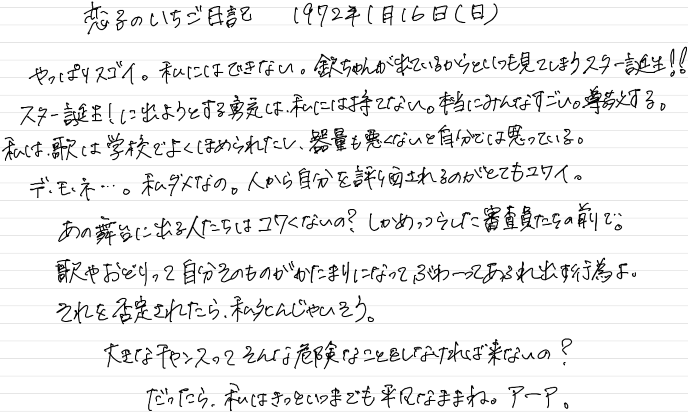 恋子のいちご日記 1972年1月16日(日)
やっぱりスゴイ。私にはできない。欽ちゃんが出ているからといつも見てしまうスター誕生!!
スター誕生!に出ようとする勇気は、私には持てない。本当にみんなすごい。尊敬する。
私は、歌は学校でよくほめられたし、器量も悪くないと自分では思っている。
デ、モ、ネ…。私ダメなの。人から自分を評価されるのがとてもコワイ。
あの舞台に出る人たちはコワくないの?しかめっつらした審査員たちの前で。
歌やおどりって自分そのものがかたまりになってぶわーってあふれ出す行為よ。
それを否定されたら、私死んじゃいそう。
大きなチャンスってそんな危険なことをしなければ来ないの?
だったら、私はきっといつまでも平凡なままね。アーア。